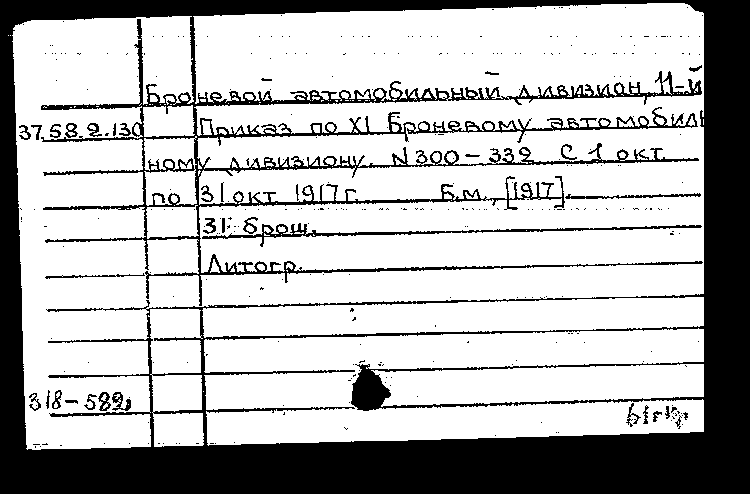 Броневой автомобильный дивизион, 11-й
37.58.2.130 Приказ по XI Броневому автомобиль
ному дивизиону. N 300-332 С 1 окт.
по 31 окт 1917 г. Б.м., [1917].
31 брош.
Литогр.
318-582